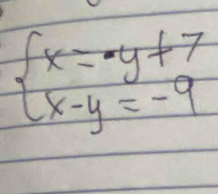 x = -y + 7
x - y = -9